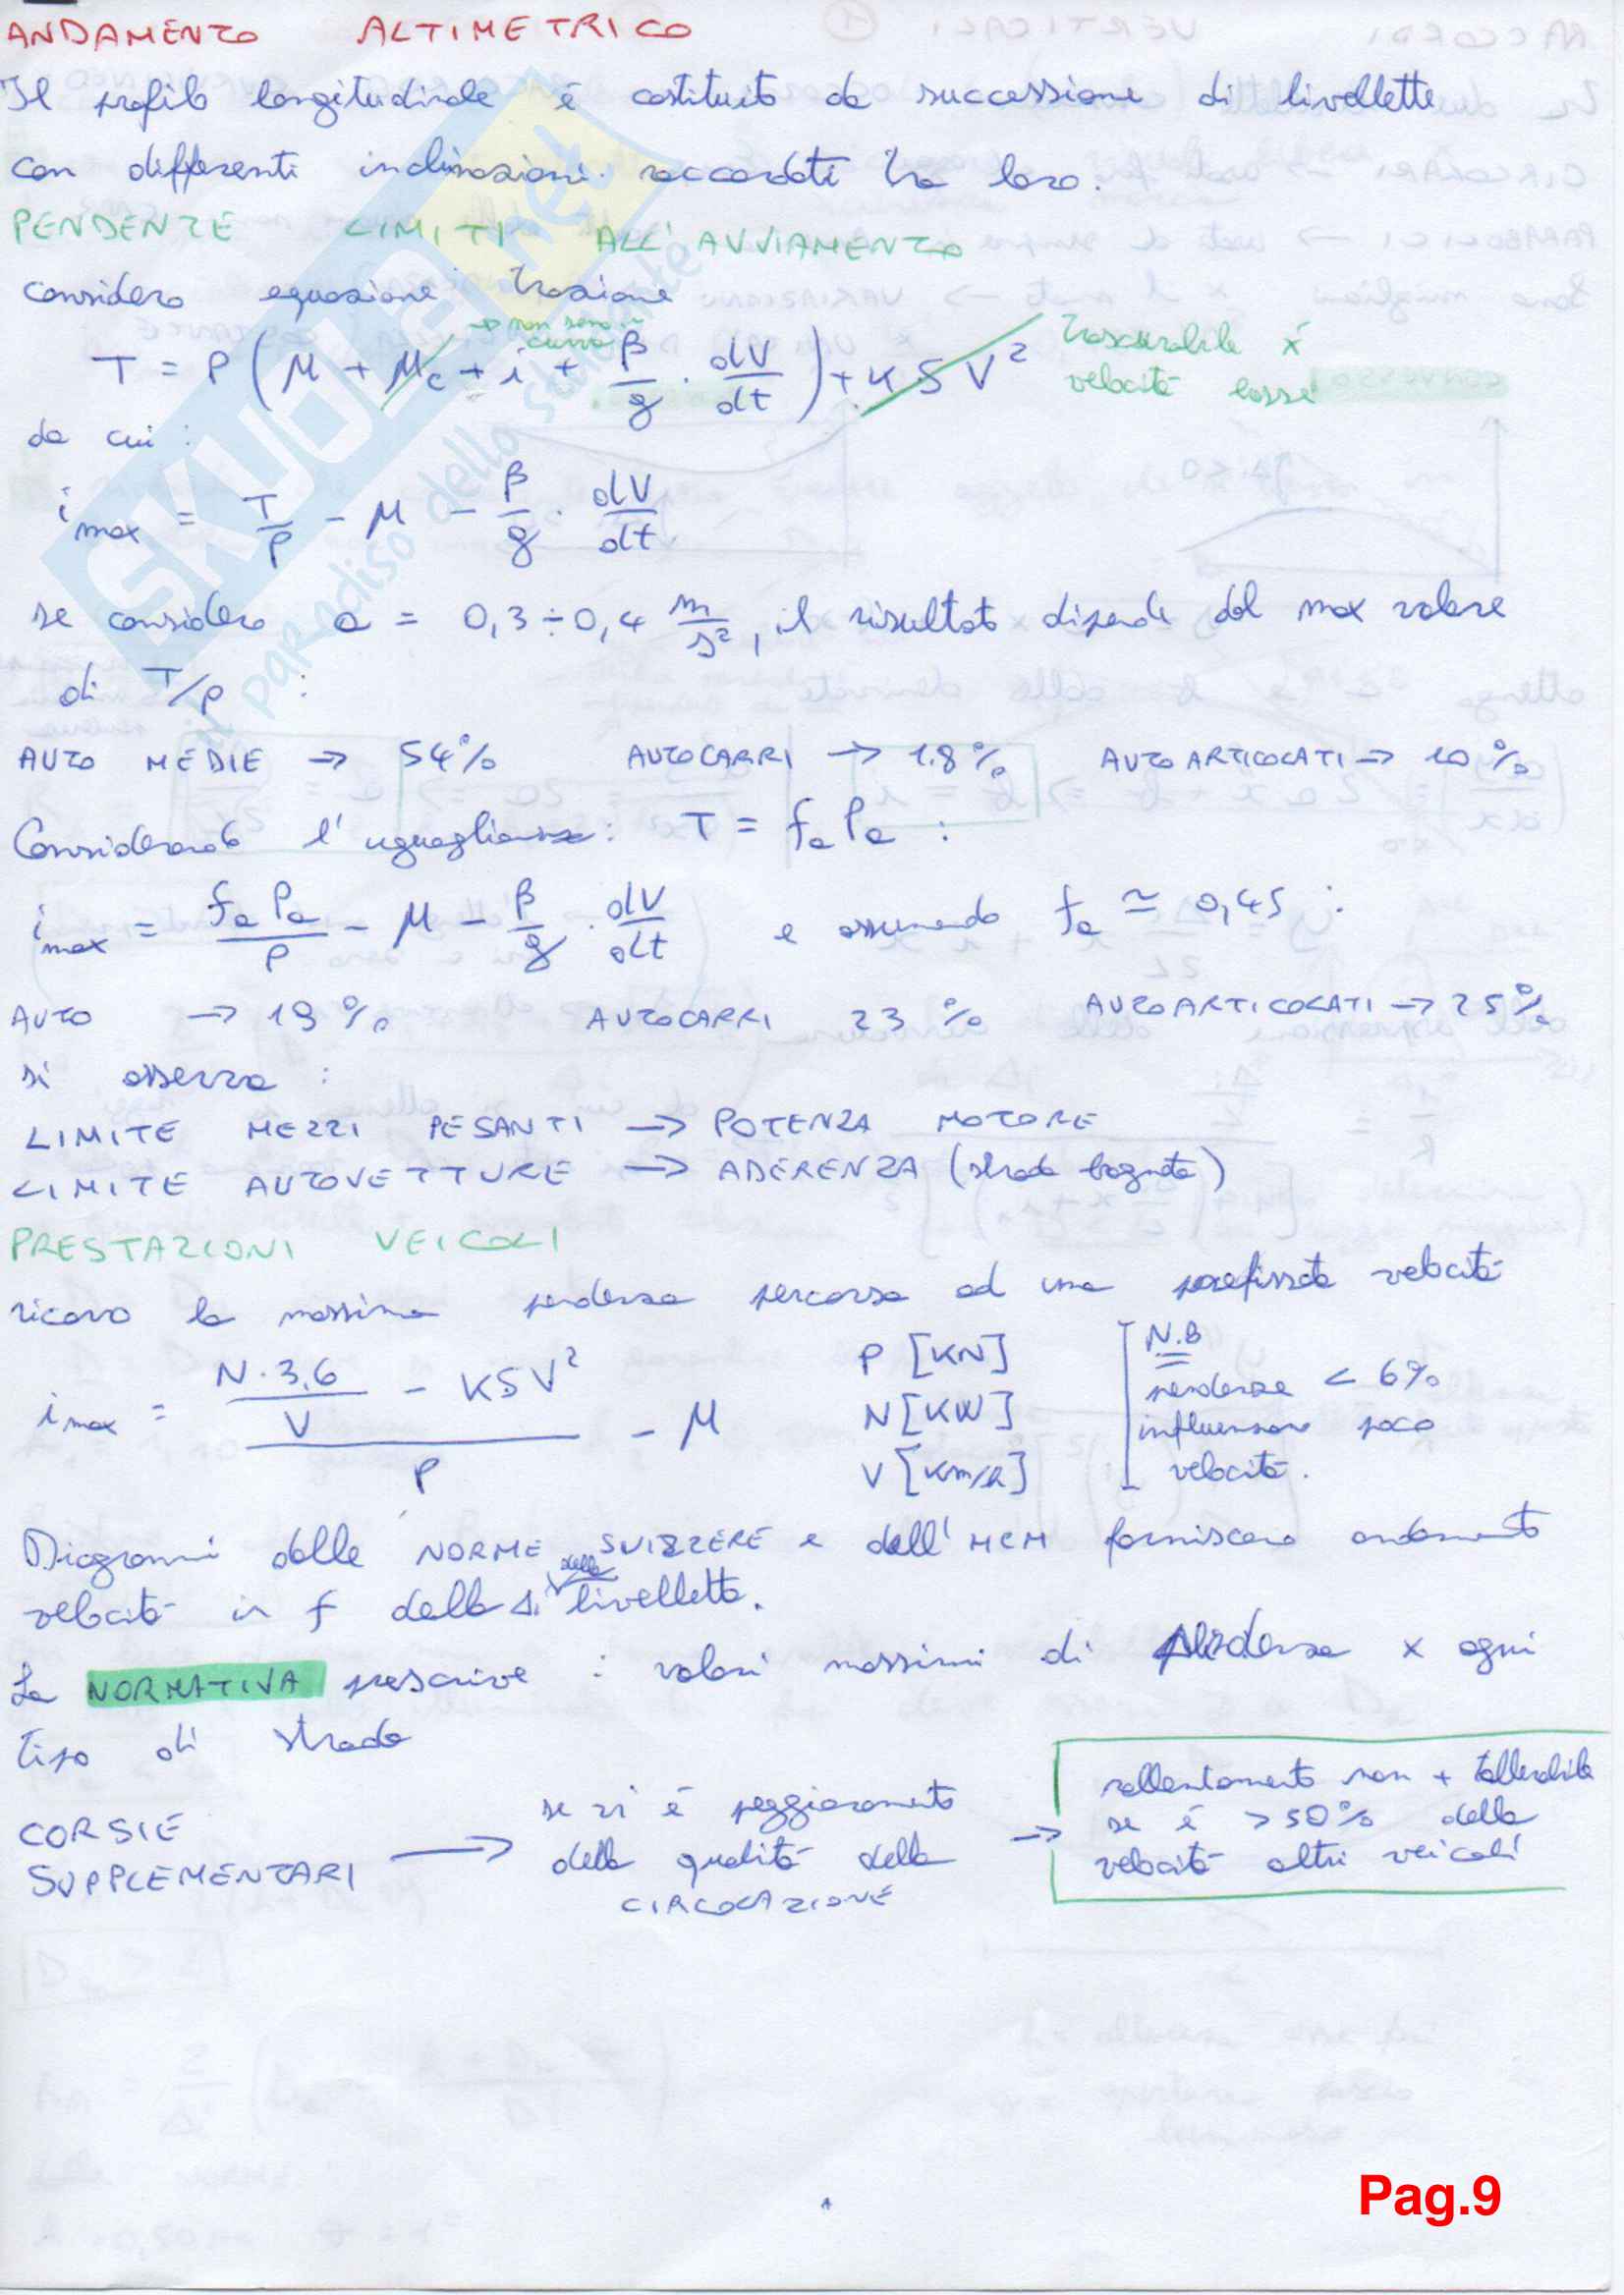 ANDAMENTO ALTIMETRICO
Il profilo longitudinale è costituito da successione di livellette
con differenti inclinazioni raccordati tra loro.
PENDENZE LIMITI ALL'AVVIAMENTO
considero equazione trazione
→ non sono in curva
T = P (μ + μc + i + β/g · dV/dt) + KSV² trascurabile x velocità basse
da cui :
i max = T/P - μ - β/g · dV/dt
se considero a = 0,3÷0,4 m/s², il risultato dipende dal max valore
di T/P :
AUTO MEDIE → 54% AUTOCARRI → 18% AUTOARTICOLATI → 10%
Considerando l'uguaglianza: T = fa Pa :
i max = fa Pa/P - μ - β/g · dV/dt e assumendo fa ≃ 0,45 :
AUTO → 19% AUTOCARRI 23% AUTOARTICOLATI → 25%
si osserva :
LIMITE MEZZI PESANTI → POTENZA MOTORE
LIMITE AUTOVETTURE → ADERENZA (strada bagnata)
PRESTAZIONI VEICOLI
ricavo la massima pendenza percorsa ad una prefissata velocità
i max = (N·3,6/V - KSV²)/P - μ
P [KN]
N [KW]
V [Km/h]
N.B
pendenze < 6%
influenzano poco
velocità.
Diagrammi delle NORME SVIZZERE e dell'HCM forniscono andamento
velocità in f della Δi della livelletta.
La NORMATIVA prescrive : valori massimi di pendenza x ogni
tipo di strada
CORSIE SUPPLEMENTARI → se vi è peggioramento della qualità della CIRCOLAZIONE → rallentamento non + tollerabile se è >50% della velocità altri veicoli
SKUOLA.net
il paradiso dello studente
Pag.9